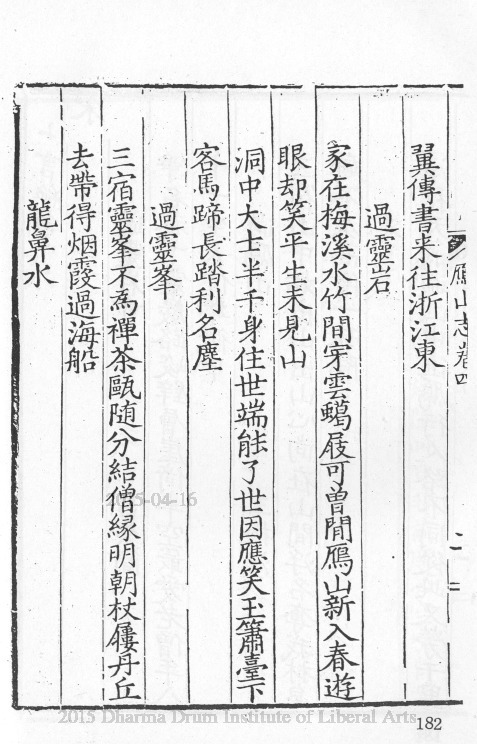 鴈山志卷四
二二
翼傳書来往浙江東
過靈岩
家在梅溪水竹間穿雲蠟屐可曾閒鴈山新入春遊
眼却笑平生未見山
洞中大士半千身住世端能了世因應笑玉簫臺下
客馬蹄長踏利名塵
過靈峯
三宿靈峯不為禪茶甌随分結僧緣明朝杖屨丹丘
去帶得烟霞過海船
龍鼻水
2015-04-16
2015 Dharma Drum Institute of Liberal Arts
182